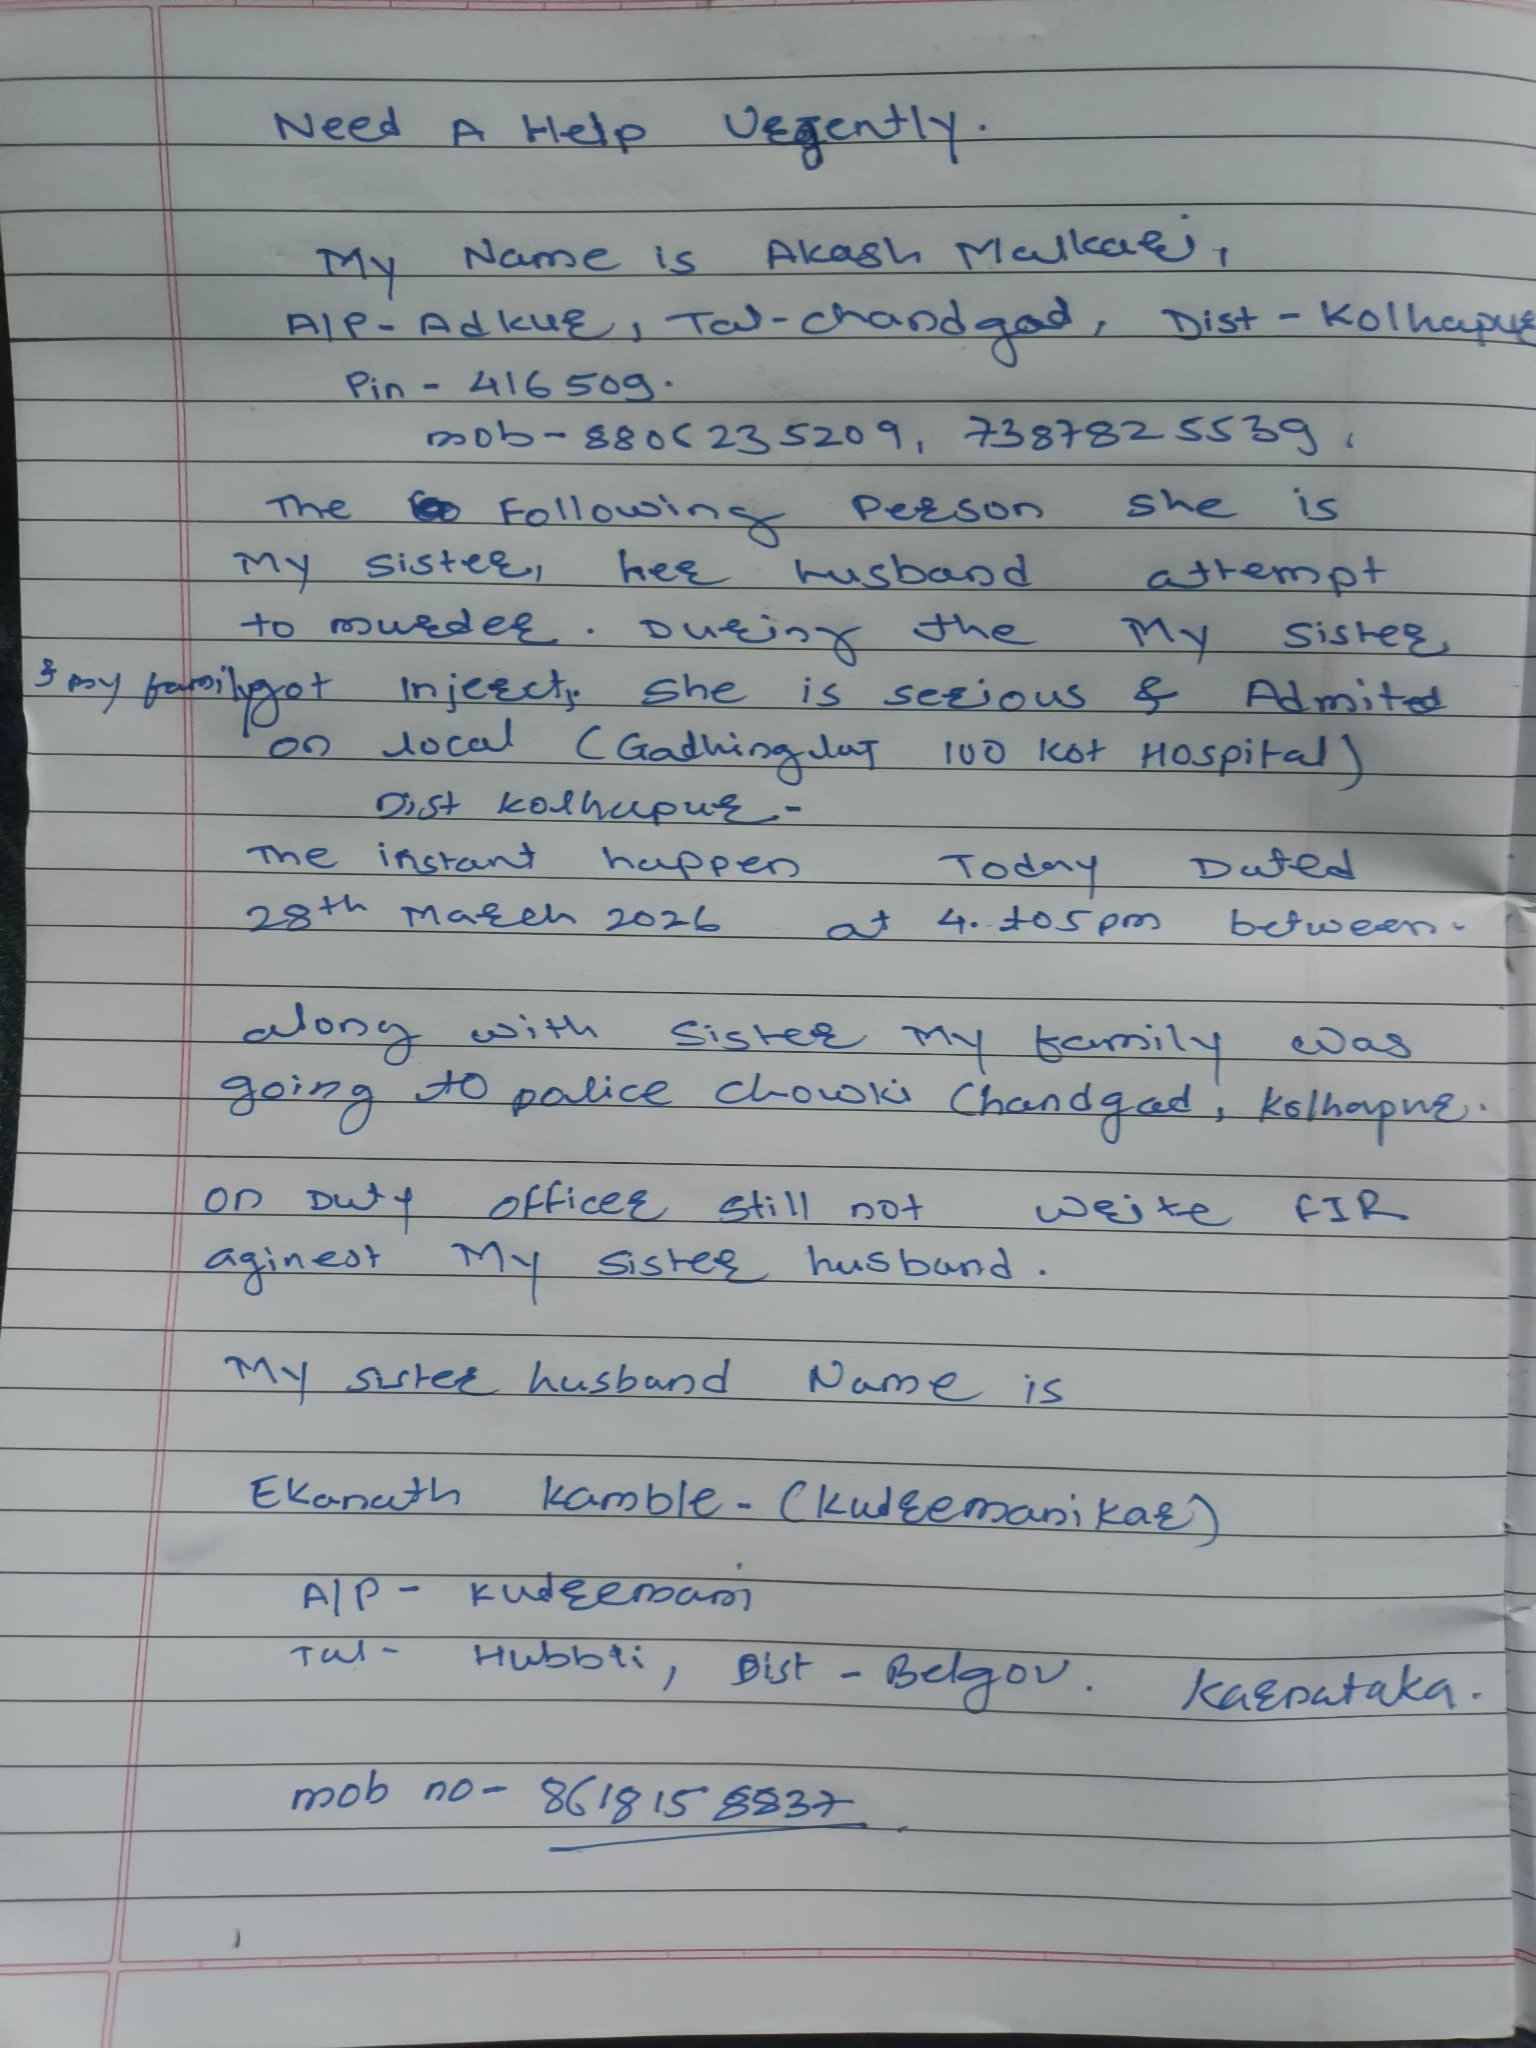 Need A Help Urgently.
My Name is Akash Malkari,
A/P- Adkur, Tal-chandgad, Dist - Kolhapur
Pin - 416509.
mob - 8806235209, 7387825539,
The Following Person she is
My sister, her husband attempt
to murder. During the My Sister
& my family got Injerct, she is serious & Admited
on local (Gadhinglaj 100 Kot Hospital)
Dist Kolhapur -
The instant happen Today Dated
28th March 2026 at 4. to 5 pm between.
along with Sister My family was
going to police chowki Chandgad, Kolhapur.
on Duty officer still not write FIR
aginest My sister husband.
My sister husband Name is
Ekanath Kamble - (Kudremanikar)
A/P - Kudremani
Tal - Hubbli, Dist - Belgov. Karnataka.
mob no - 8618158837